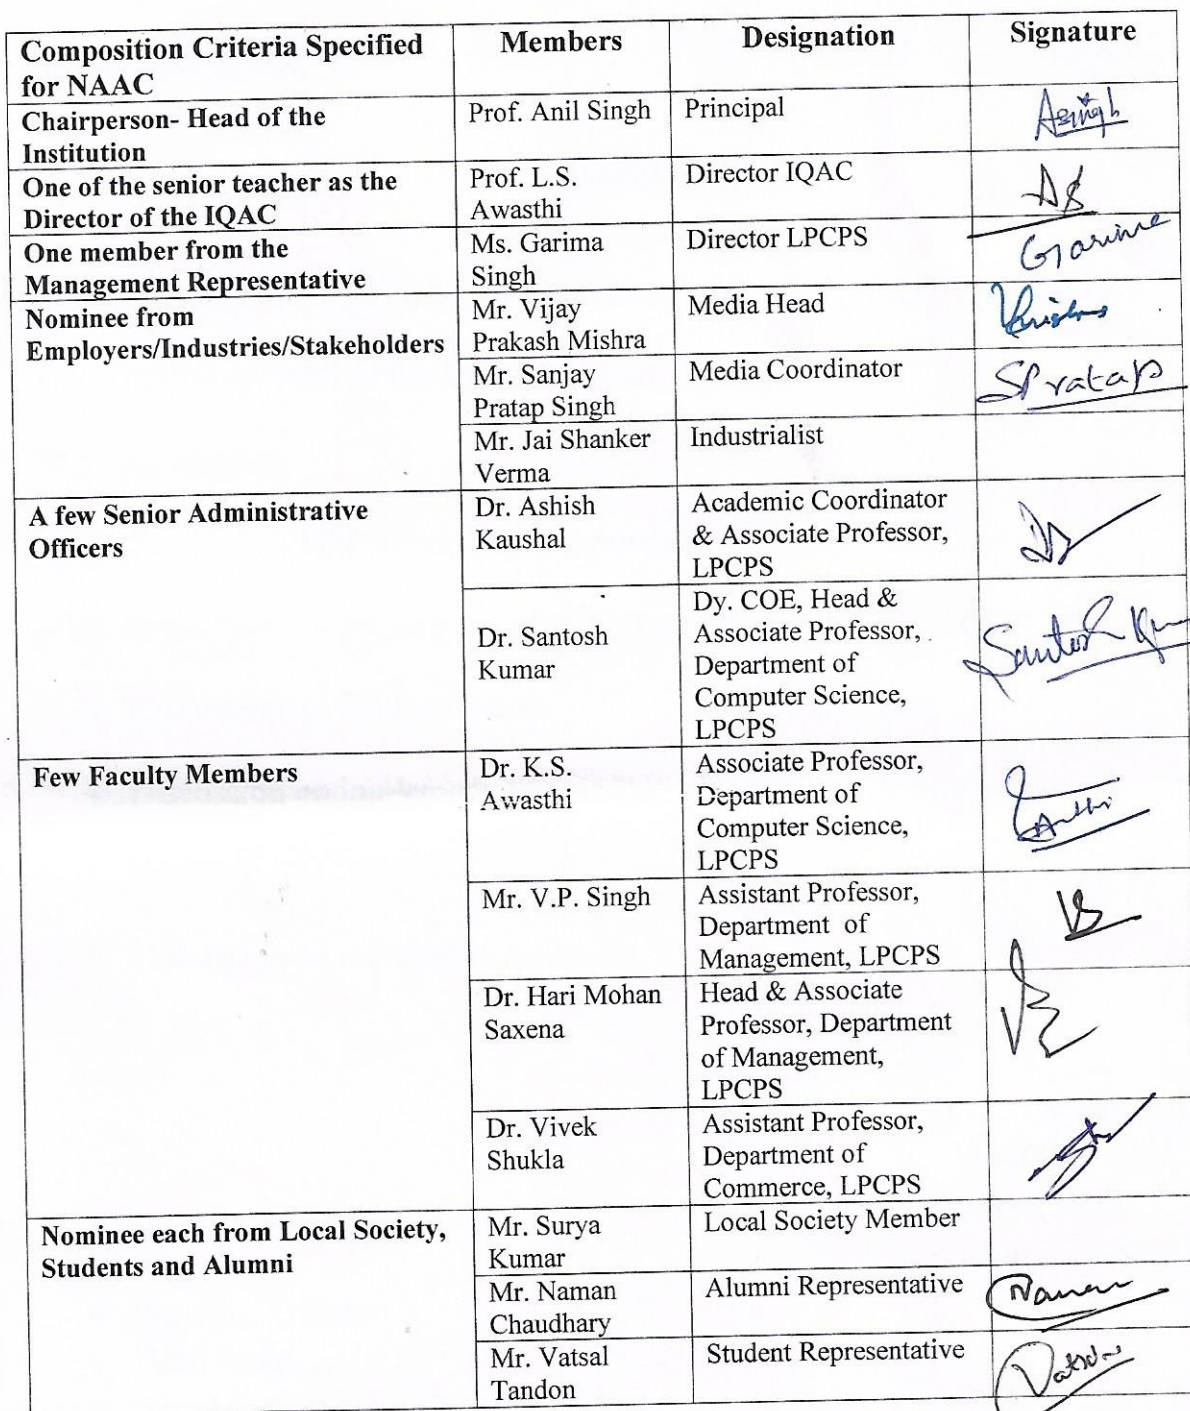 Composition Criteria Specified for NAAC Members Designation Signature
Chairperson- Head of the Institution Prof. Anil Singh Principal Asingh
One of the senior teacher as the Director of the IQAC Prof. L.S. Awasthi Director IQAC
One member from the Management Representative Ms. Garima Singh Director LPCPS Garima
Nominee from Employers/Industries/Stakeholders Mr. Vijay Prakash Mishra Media Head
Mr. Sanjay Pratap Singh Media Coordinator SPratap
Mr. Jai Shanker Verma Industrialist
A few Senior Administrative Officers Dr. Ashish Kaushal Academic Coordinator & Associate Professor, LPCPS
Dr. Santosh Kumar Dy. COE, Head & Associate Professor, Department of Computer Science, LPCPS Santosh
Few Faculty Members Dr. K.S. Awasthi Associate Professor, Department of Computer Science, LPCPS
Mr. V.P. Singh Assistant Professor, Department of Management, LPCPS
Dr. Hari Mohan Saxena Head & Associate Professor, Department of Management, LPCPS
Dr. Vivek Shukla Assistant Professor, Department of Commerce, LPCPS
Nominee each from Local Society, Students and Alumni Mr. Surya Kumar Local Society Member
Mr. Naman Chaudhary Alumni Representative Naman
Mr. Vatsal Tandon Student Representative Vatsal